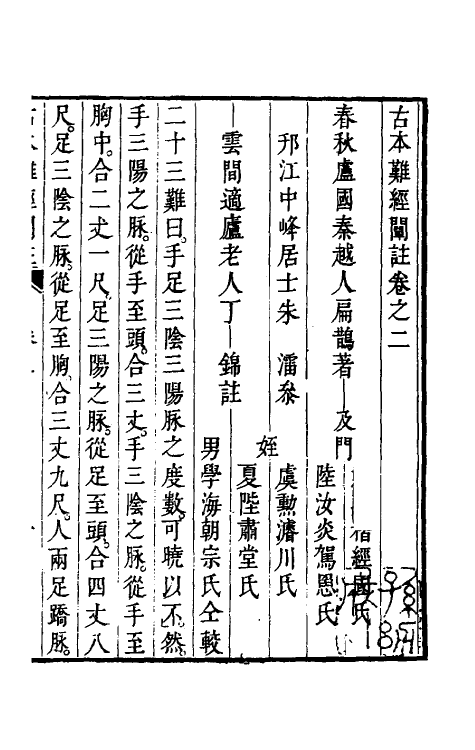 古本難經闡註卷之二
春秋盧國秦越人扁鵲著
及門
緒經國氏
陸汝炎駕恩氏
邗江中峰居士朱 㵎叅
虞勲濬川氏
姪
夏陛肅堂氏
雲間適廬老人丁 錦註
男學海朝宗氏仝較
二十三難曰手足三陰三陽脉之度數可曉以不然
手三陽之脉從手至頭合三丈手三陰之脉從手至
胸中合二丈一尺足三陽之脉從足至頭合四丈八
尺足三陰之脉從足至胸合三丈九尺人兩足蹻脉